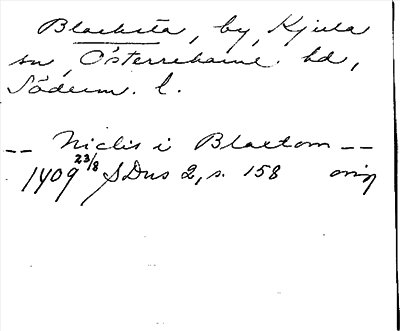 Blacksta, by, Kjula
sn, Österrekarne. hd,
Söderm. l.
-- Niclis i Blactom --
1409 23/8 SDns 2, s. 158 orig